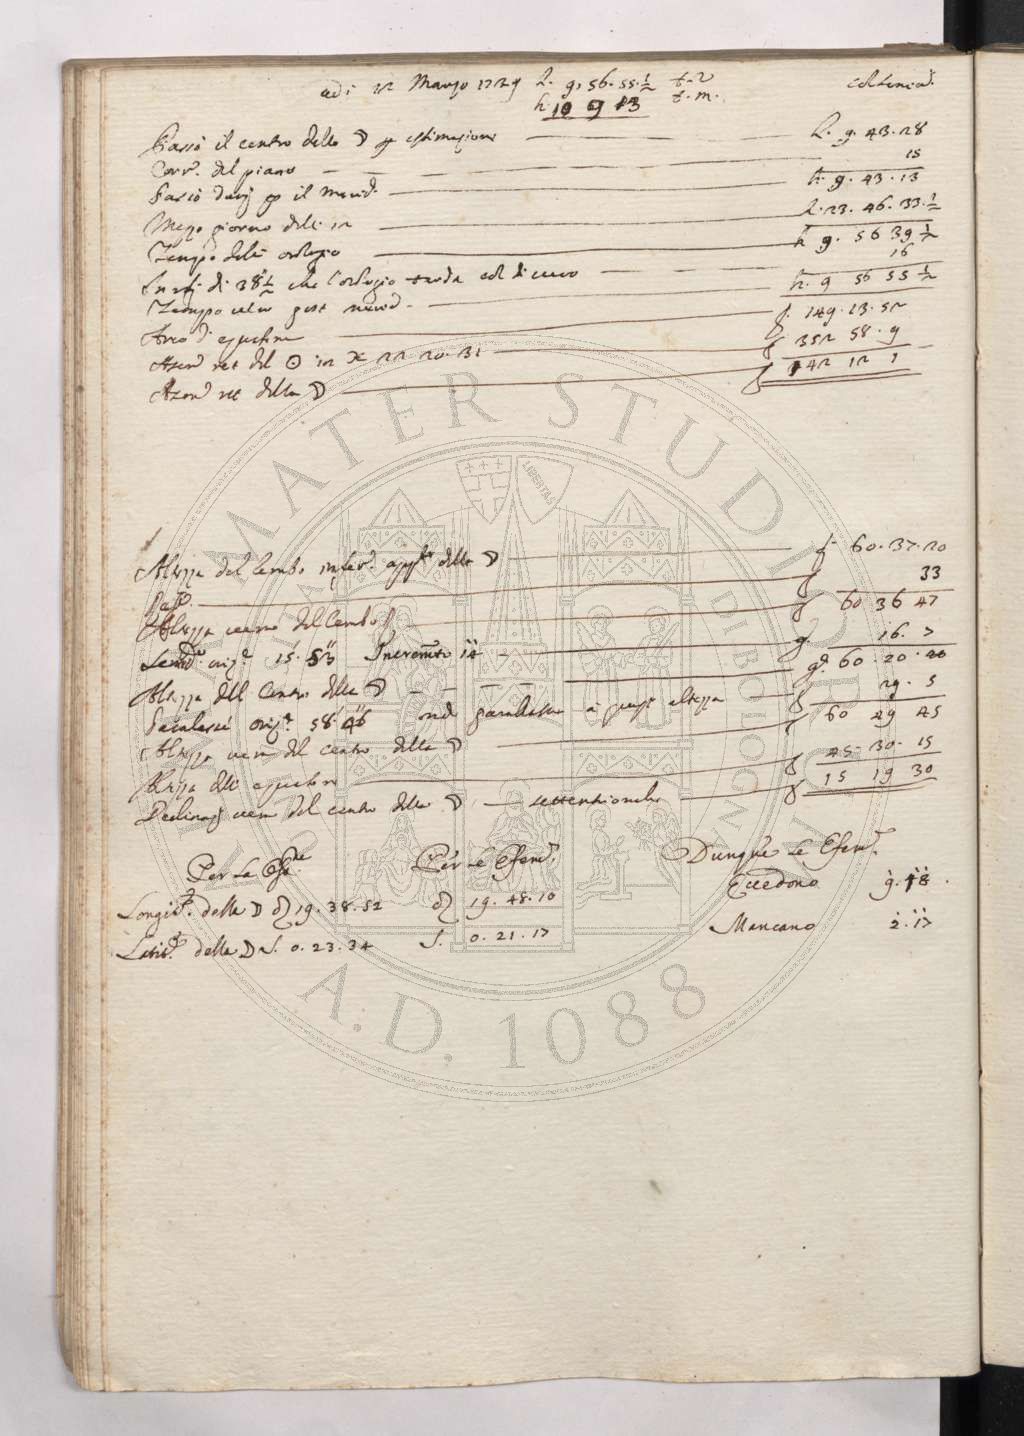 adi 12 Marzo 1729 h. 9. 56. 55 ½ t. v
h. 10 9 13 t. m.
Passò il centro della ☽ p estimazione h. 9. 43. 28
Corr.e del piano 15
Passò dunq p il Merid. h. 9. 43. 13
Mezzo giorno delli 12 h. 23. 46. 33. ½
Tempo dell' orologio h 9. 56 39 ½
di 38" ½ che l'orologio tarda 16
Tempo vero post merid. h. 9 56 55 ½
Arco d' equatore g. 149. 13. 52
Ascen ret del ☉ in ♓ 22 20. 31 g 352 58. 9
Ascen ret della ☽ g 142 12 1
Altezza del lembo infer. app.te della ☽ g. 60. 37. 20
33
Altezza vera del lembo g 60 36 47
Semid. oriz. 15. 53 Incremto 14 g. 16. 7
Altezza del centro della ☽ g. 60. 20. 40
Paralasse oriz. 58. 46 onde paralasse a quest altezza 29. 5
Altezza vera del centro della ☽ g 60 49 45
Altezza dell' equatore g 45. 30. 15
Declinaz vera del centro della ☽ settentrionale g 15 19 30
Per la Osse Per le Efem. Dunque le Efem.
Longit. della ☽ ♌ 19. 38. 52 ♌ 19. 48. 10 Eccedono 9. 18
Latit. della ☽ S. 0. 23. 34 S. 0. 21. 17 Mancano 2. 17
ALMA MATER STUDIORUM
LIBERTAS
BOLOGNA
A.D. 1088